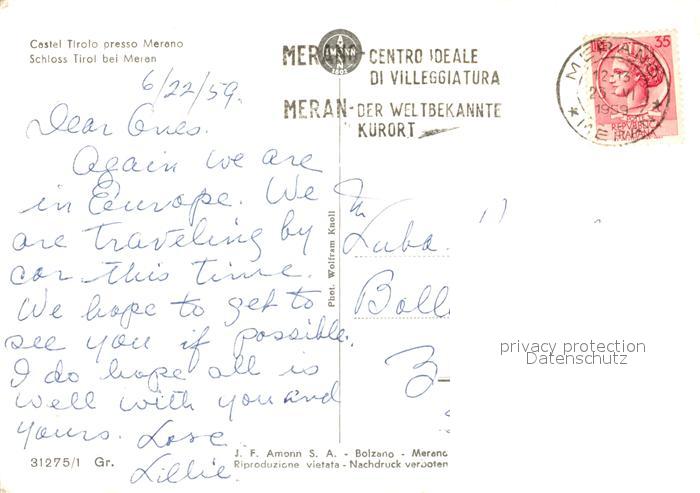 Castel Tirolo presso Merano
Schloss Tirol bei Meran
AMONN
1802
MERANO - CENTRO IDEALE
DI VILLEGGIATURA
MERAN - DER WELTBEKANNTE
KURORT
35
MERANO
12-13
1959
MERAN
6/22/59.
Dear Ones.
Again we are
in Europe. We
are traveling by
car this time.
We hope to get to
see you if possible.
I do hope all is
well with you and
yours. Love
Lillie.
Luba
Boll
Phot. Wolfram Knoll
privacy protection
Datenschutz
31275/1 Gr.
J. F. Amonn S. A. - Bolzano - Merano
Riproduzione vietata - Nachdruck verboten